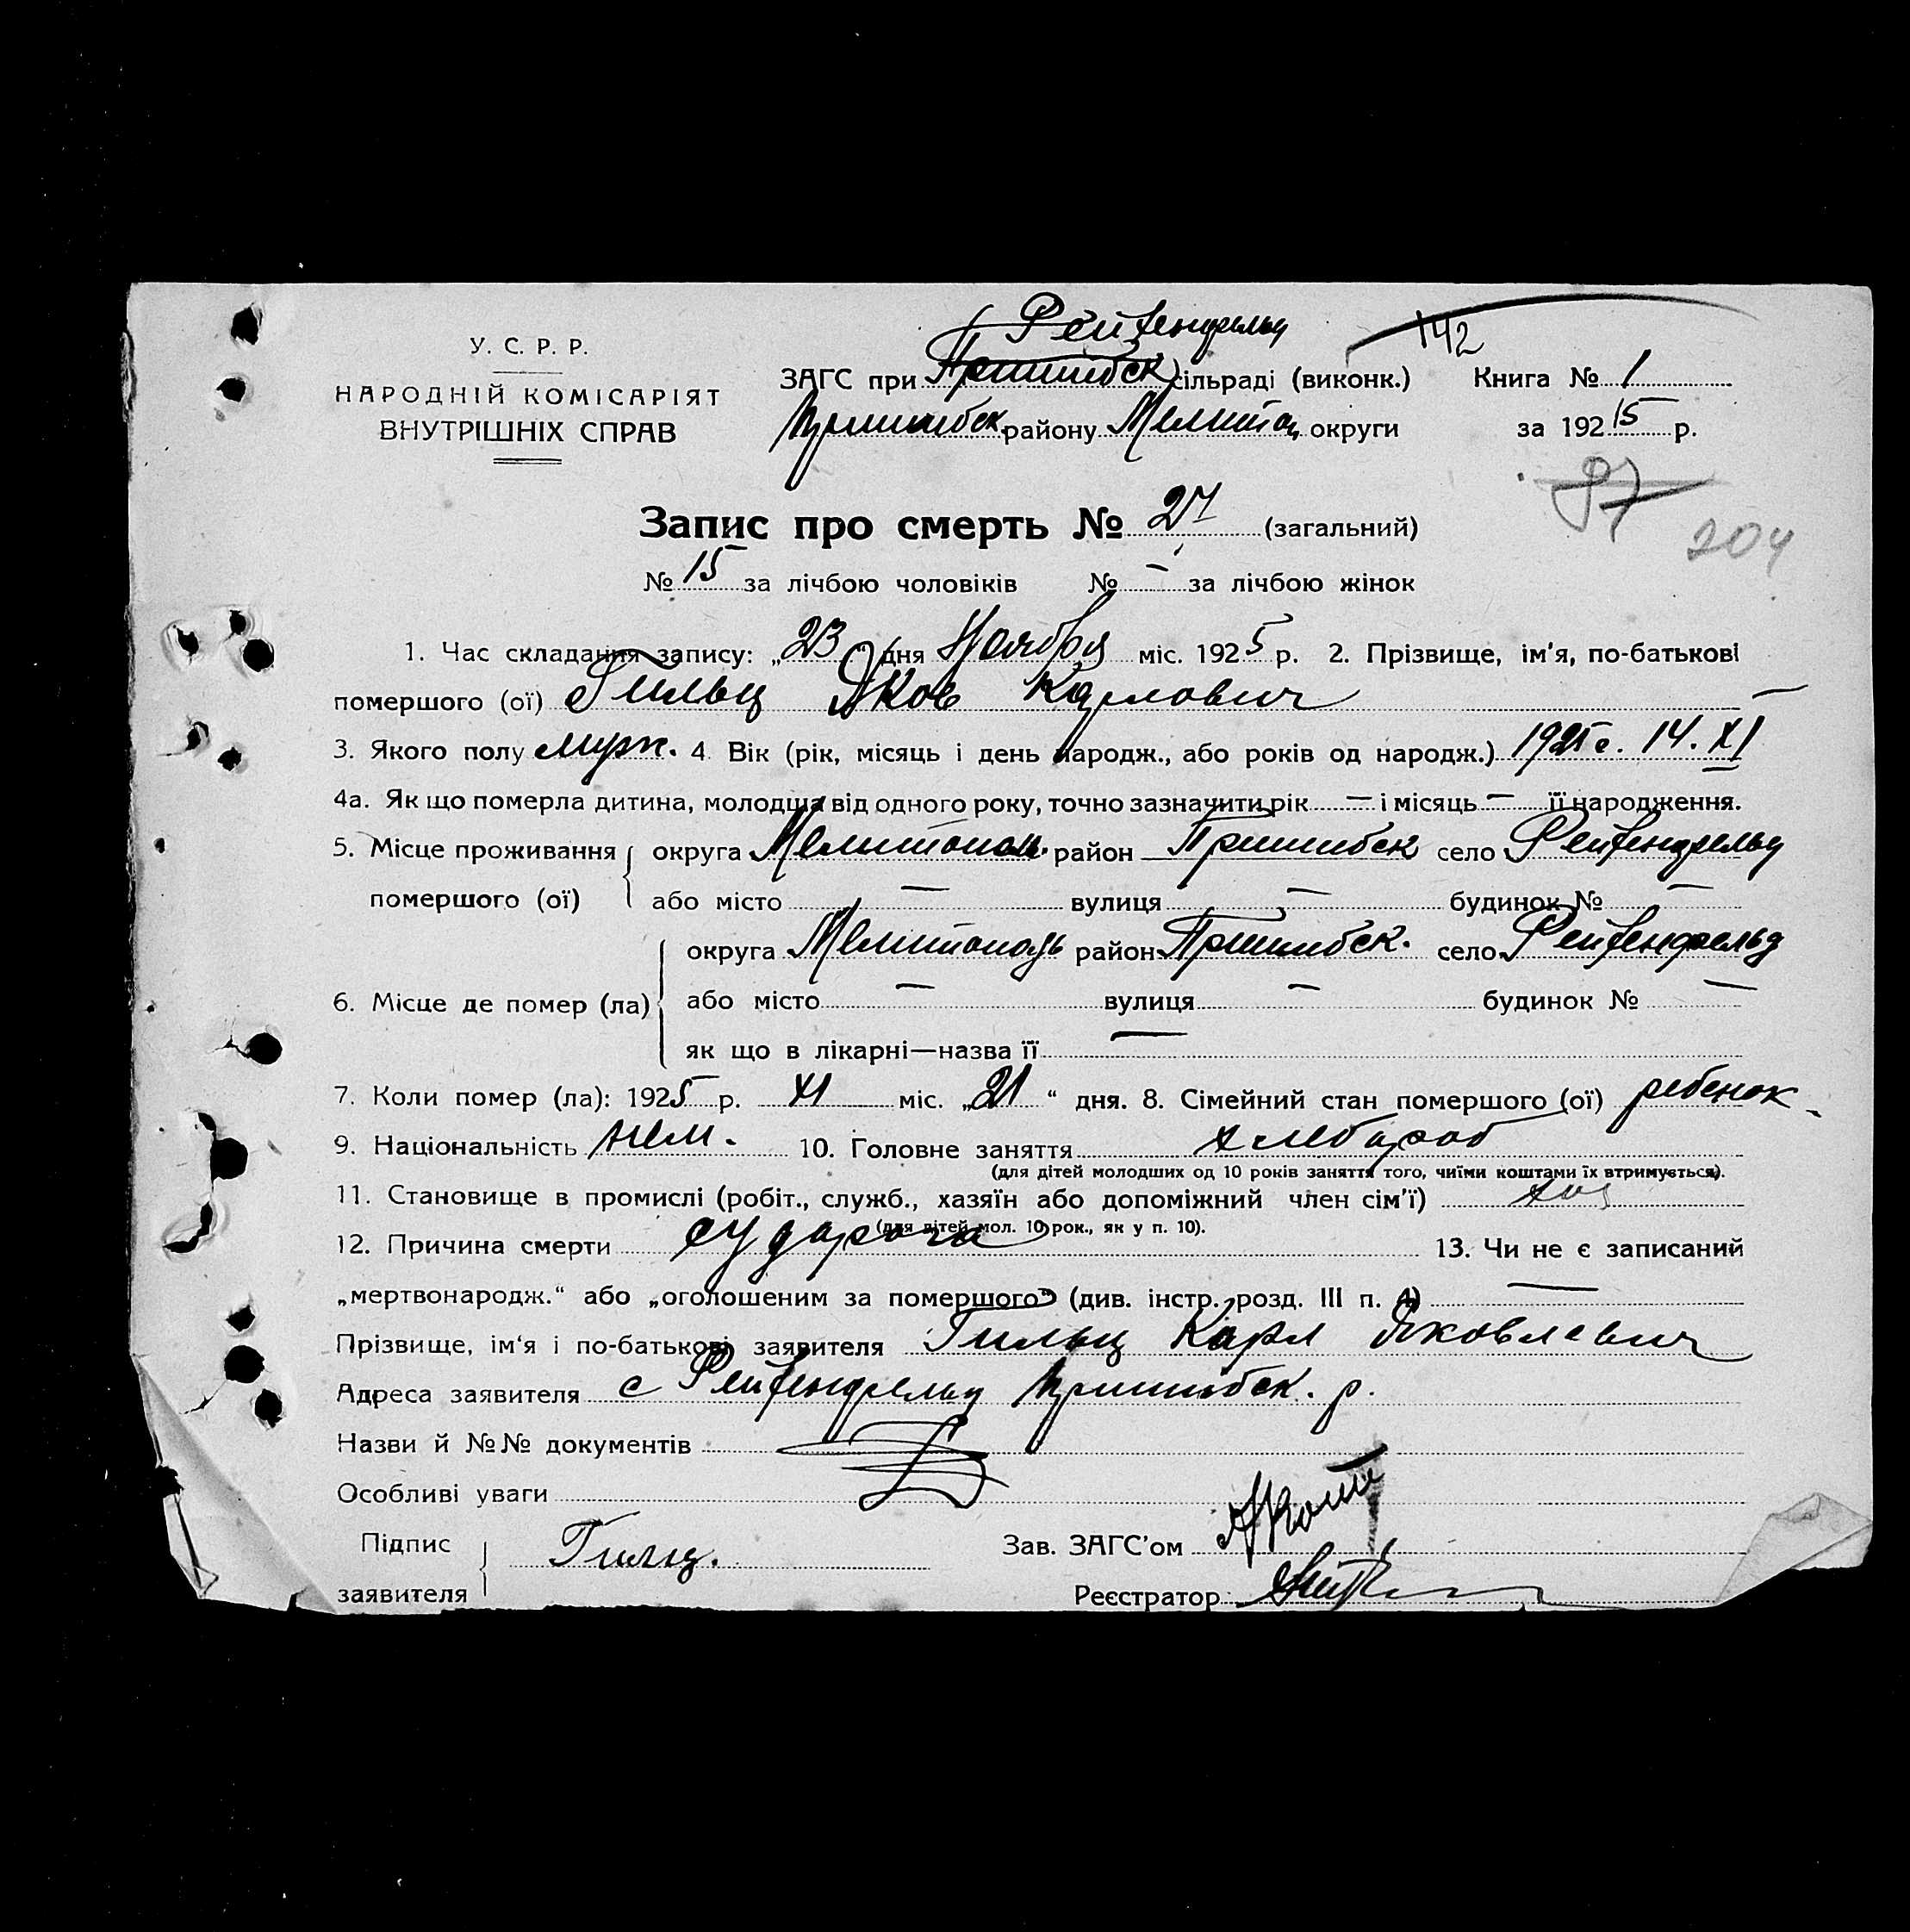 Рейхенфельд
142
У. С. Р. Р.
ЗАГС при Пришибск сільраді (виконк.) Книга № 1
НАРОДНІЙ КОМІСАРІЯТ
ВНУТРІШНІХ СПРАВ
Пришибск. району Мелитоп. округи за 1925 р.
97
204
Запис про смерть № 27 (загальний)
№ 15 за лічбою чоловіків № – за лічбою жінок
1. Час складання запису: „23“ дня Ноября міс. 1925 р. 2. Прізвище, ім'я, по-батькові
помершого (ої) Гильц Яков Карлович —
3. Якого полу муж. 4. Вік (рік, місяць і день народж., або років од народж.) 1925 г. 14. XI
4а. Як що померла дитина, молодша від одного року, точно зазначити рік – і місяць – її народження.
5. Місце проживання округа Мелитопол. район Пришибск село Рейхенфельд
помершого (ої) або місто – вулиця – будинок № –
округа Мелитополь район Пришибск. село Рейхенфельд
6. Місце де помер (ла) або місто – вулиця – будинок № –
як що в лікарні—назва її –
7. Коли помер (ла): 1925 р. XI міс. „21“ дня. 8. Сімейний стан помершого (ої) ребенок
9. Національність нем. 10. Головне заняття хлебороб
(для дітей молодших од 10 років заняття того, чиїми коштами їх втримується).
11. Становище в промислі (робіт., служб., хазяїн або допоміжний член сім'ї) хоз
(для дітей мол. 10 рок., як у п. 10).
12. Причина смерти судорога 13. Чи не є записаний
„мертвонародж.“ або „оголошеним за помершого“ (див. інстр. розд. III п. 4) —
Прізвище, ім'я і по-батькові заявителя Гильц Карл Яковлевич
Адреса заявителя с Рейхенфельд Пришибск. р.
Назви й №№ документів
Особливі уваги
Підпис Гильц. Зав. ЗАГС'ом
заявителя Реєстратор